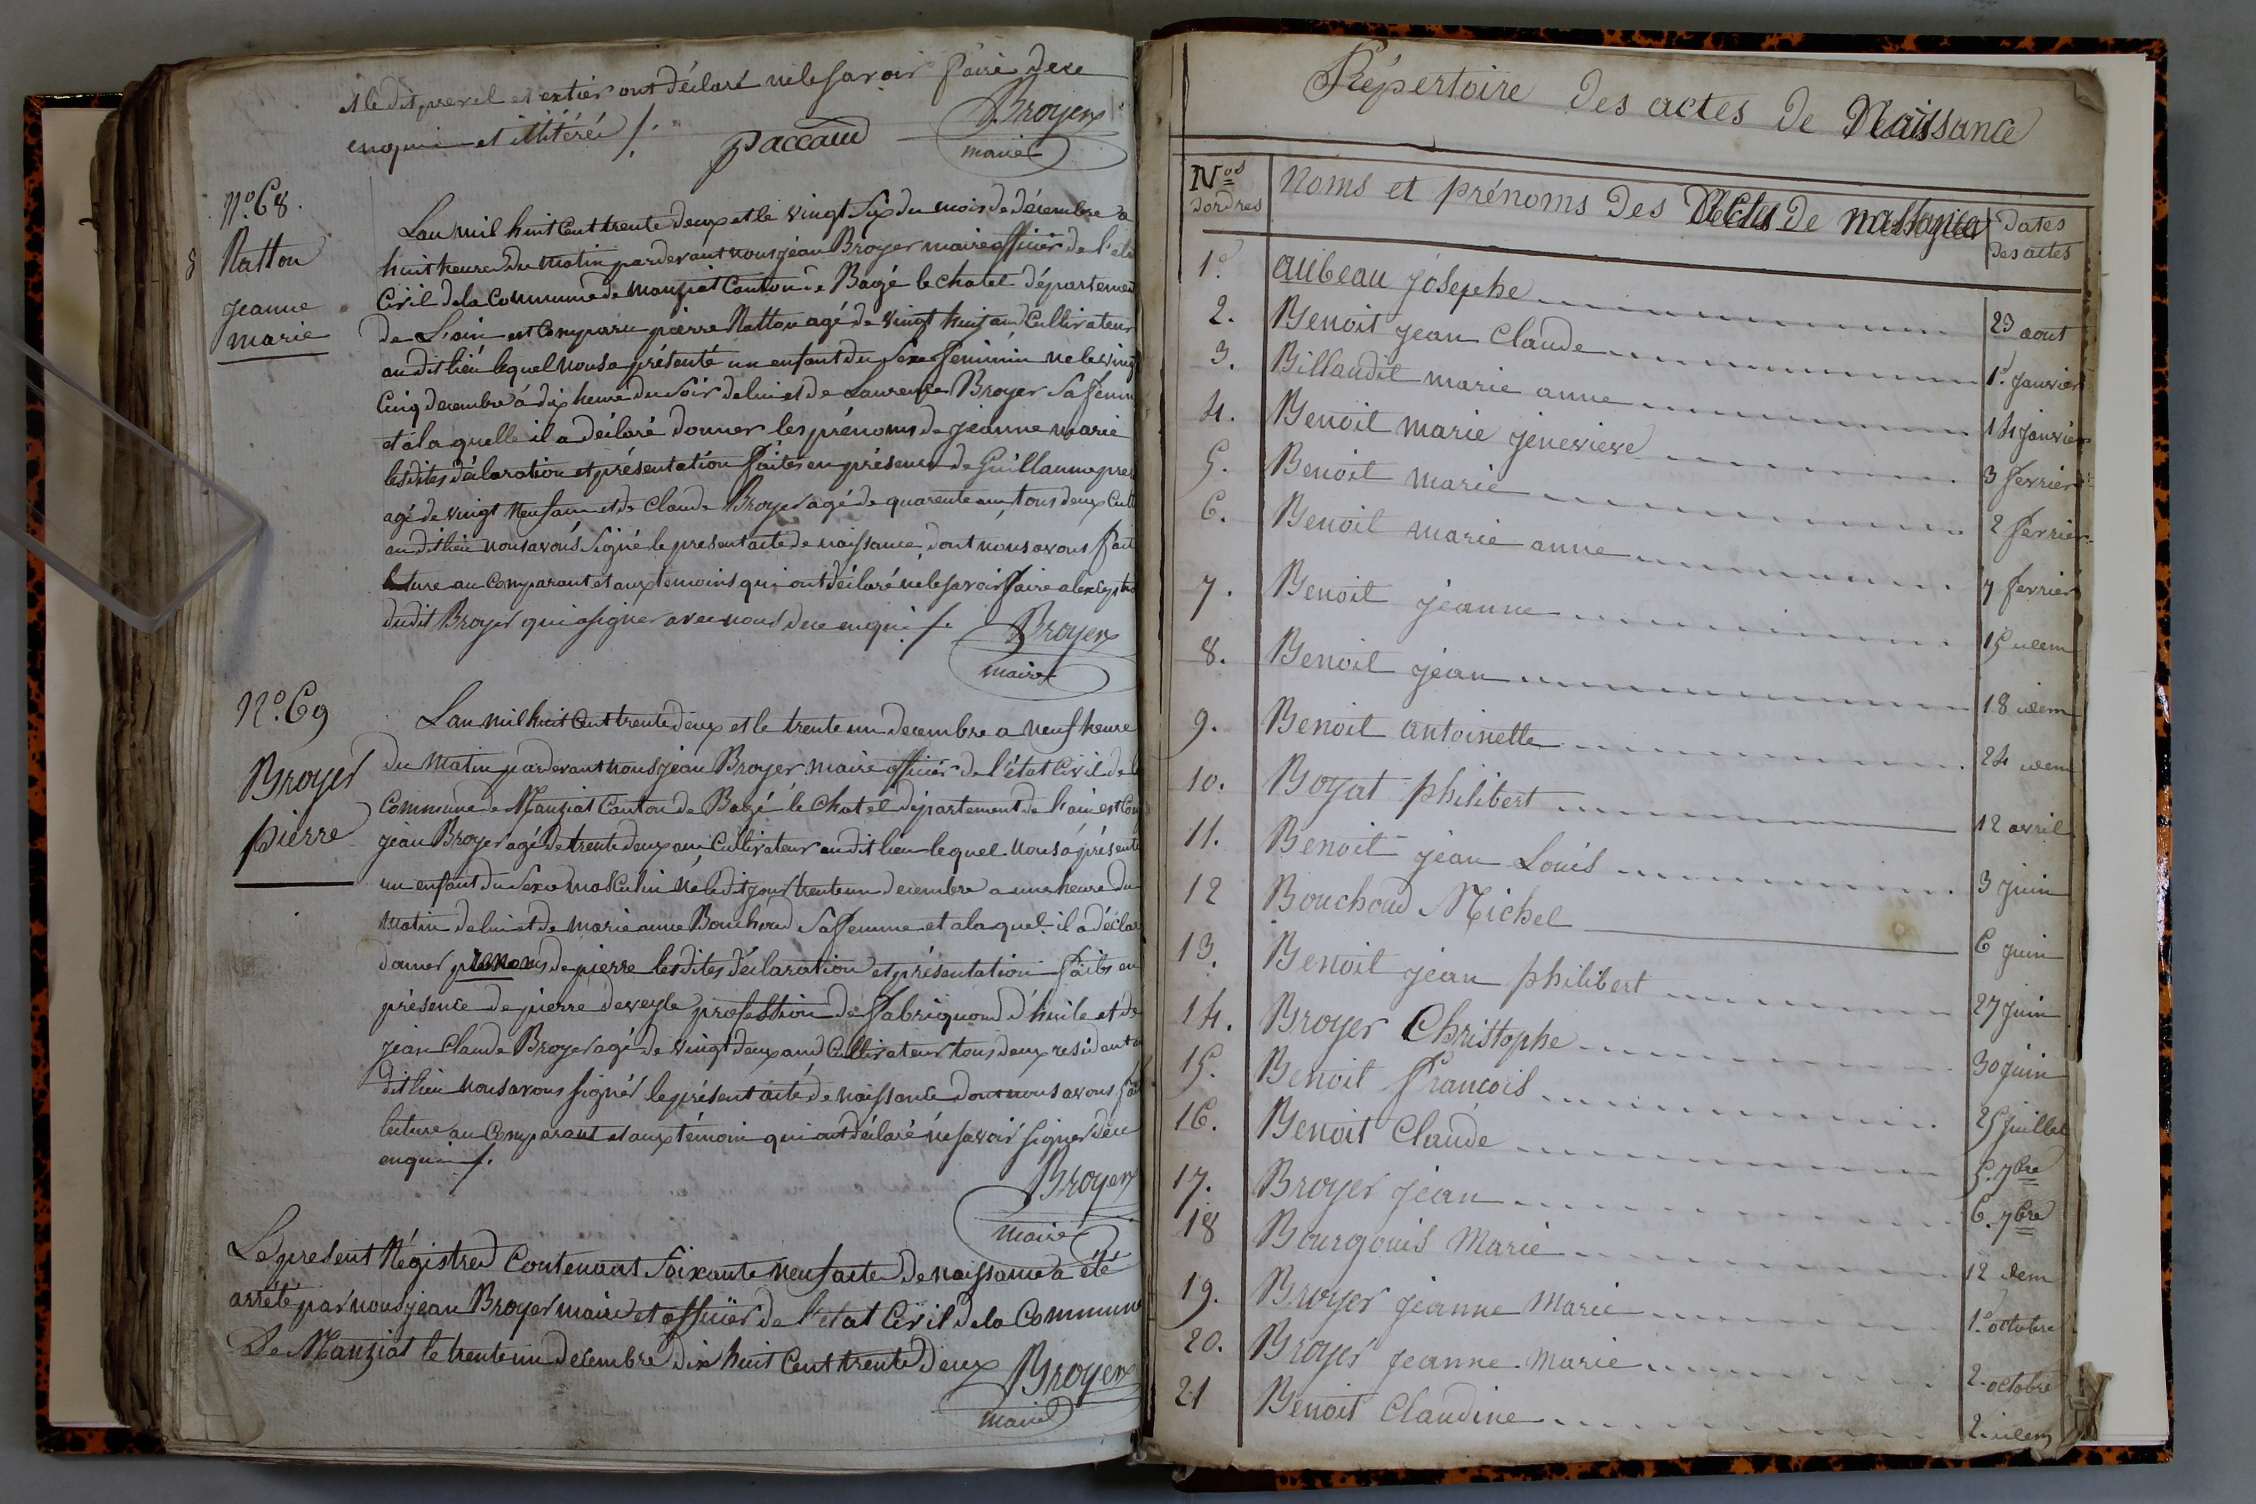 et le dit prevel et extier ont déclaré ne le savoir faire de ce
enquis et illitéré /.
paccaud
Broyer
maire
N.º 68.
Natton
jeanne
marie
Lan mil huit Cent trente deux et le vingt Six du mois de décembre a
huit heures du matin pardevant nous jéan Broyer maire officier de l'éta
Civil de la Commune de manziat Canton de Bagé le chatel département
de L'ain est Comparu pierre Natton agé de vingt huit ans Cultivateur
au dit lieu lequel nous a présenté un enfant du Sexe feminin né le vingt
Cinq decembre á dix heure du Soir de lui et de Laurence Broyer Sa femm
et á la quelle il a déclaré donner les prénoms de jeanne marie
lesdites déclaration et présentation faites en présence de Guillaume prev
agé de vingt Neuf ans et de Claude Broyer agé de quarente ans, tous deux Cult
au dit lieu nous avons Signé le present acte de naissance, dont nous avons fait
lecture au Comparant et aux temoins qui ont déclaré ne le savoir faire a lexcepti
dudit Broyer qui a signer avec nous de ce enquis /.
Broyer
maire
N.º 69
Broyer
pierre
Lan mil huit Cent trente deux et le trente un decembre a neuf heure
du Matin pardevant nous jéan Broyer maire officier de l'état Civil de l
Commune de Manziat Canton de Bagé le Chatel département de l'ain est Com
jéan Broyer agé de trente deux ans, Cultivateur au dit lieu lequel Nous a présenté
un enfant du Sexe masculin né le dit jour trente un decembre a une heure du
Matin de lui et de marie anne Bouchoud Sa femme et a la quel il a décla
donner prenoms de pierre lesdites déclaration et présentation faites en
présence de pierre deveyle profession de fabriquand d'huile et de
jéan Claude Broyer agé de vingt deux ans Cultivateur tous deux residant a
dit lieu nous avons signés le présent acte de naissance dont nous avons fai
lecture au Comparant et aux témoin qui ont déclaré ne savoir signer de ce
enquis /.
Broyer
maire
Le present Régistre Contenant Soixante neuf actes de naissance a été
arrété par nous jean Broyer maire et officier de l'état Civil de la Commune
De Manziat le trente un decembre dix huit Cent trente deux
Broyer
maire
Répertoire des actes de Naissance
Nos d'ordres
Noms et prénoms des de
Dates des actes
1.º aubeau josephe 23 aout
2. Benoit jean Claude 1.r janvier
3. Billaudit marie anne 14 janvier
4. Benoit marie jenevieve 3 fevrier
5. Benoit marie 2 fevrier
6. Benoit marie anne 7 fevrier
7. Benoit jeanne 15 idem
8. Benoit jéan 18 idem
9. Benoit antoinette 24 idem
10. Boyat philibert 12 avril
11. Benoit jean Louis 3 juin
12 Bouchoud Michel 6 juin
13. Benoit jean philibert 27 juin
14. Broyer Christophe 30 juin
15. Benoit francois 25 juillet
16. Benoit Claude 5. 7bre
17. Broyer jean 6. 7bre
18 Bourgouis Marie 12 idem
19. Broyer jeanne Marie 1.º octobre
20. Broyer jeanne Marie 2. octobre
21 Benoit Claudine 2. idem